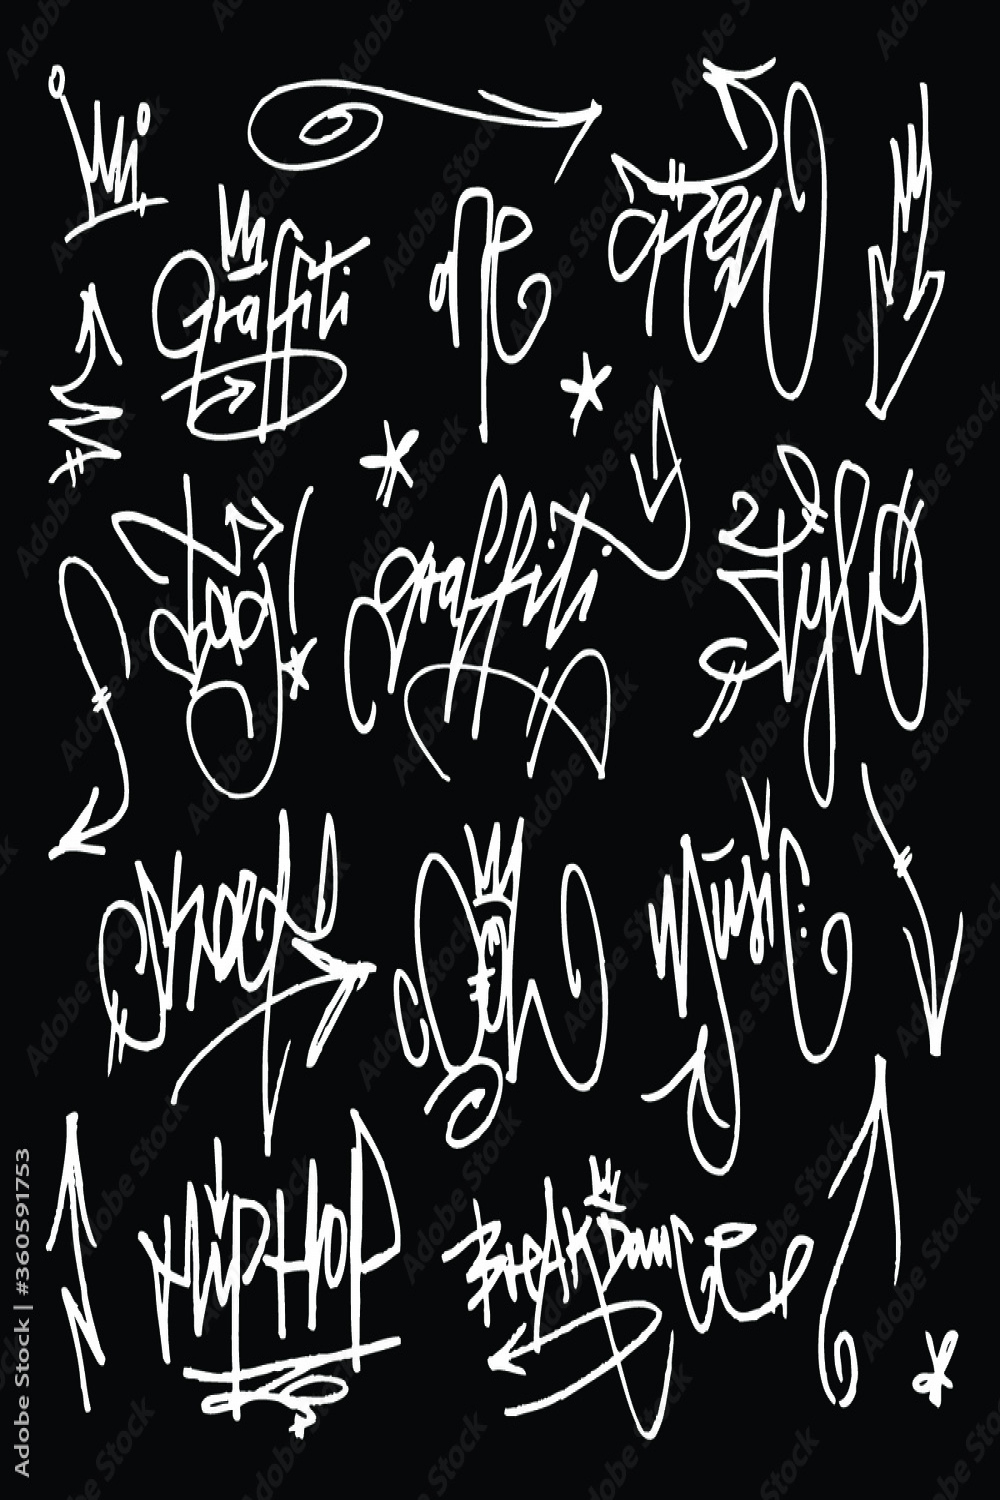 Graffiti
one
crew
tag!
graffiti
style
street
cool
music
HipHop
BreakDance
Adobe Stock | #360591753